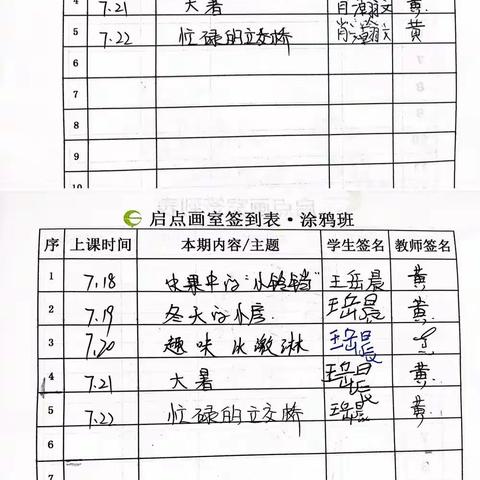 4 7.21 大暑 肖瀚文 黄
5 7.22 忙碌的立交桥 肖瀚文 黄
6
7
8
9
10
启点画室签到表·涂鸦班
序 上课时间 本期内容/主题 学生签名 教师签名
1 7.18 水果中的“小铃铛” 王岳晨 黄
2 7.19 冬天的小房 王岳晨 黄
3 7.20 趣味冰激淋 王岳晨
4 7.21 大暑 王岳晨 黄
5 7.22 忙碌的立交桥 王岳晨 黄
6
7